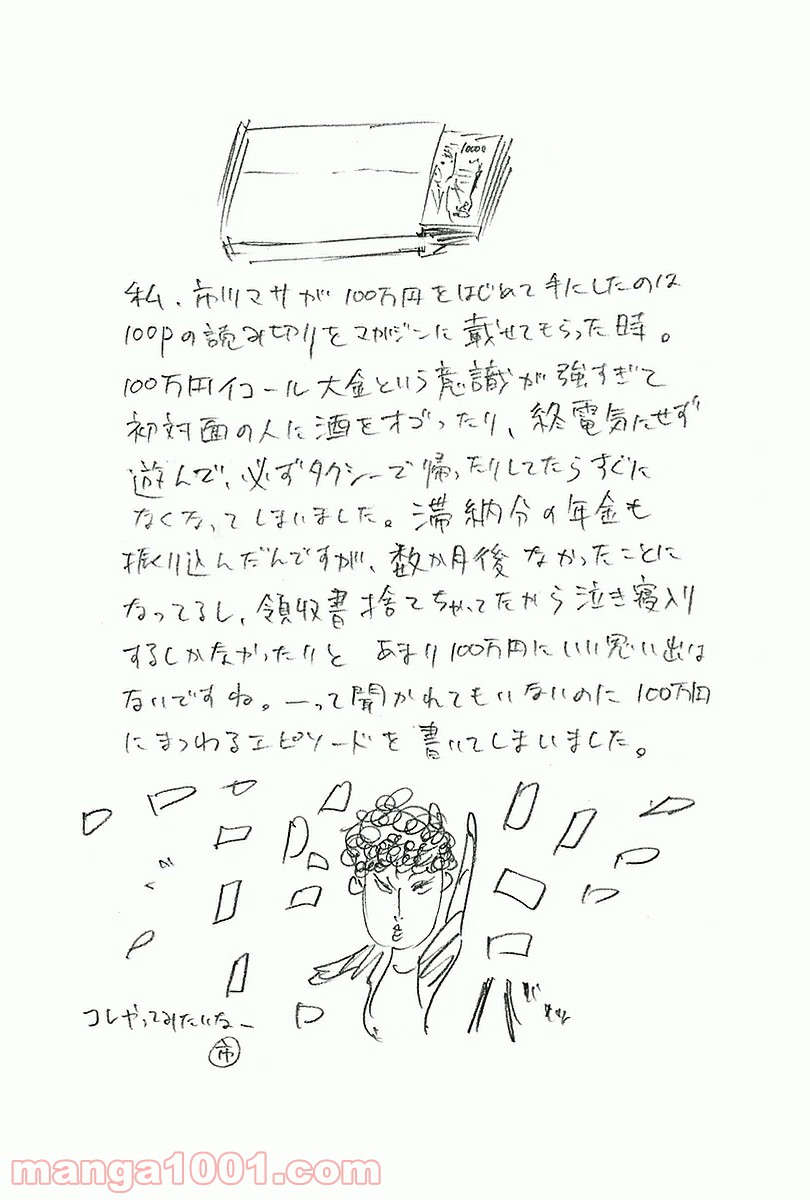 10000
私、市川マサが100万円をはじめて手にしたのは
100pの読み切りをマガジンに載せてもらった時。
100万円イコール大金という意識が強すぎて
初対面の人に酒をオゴったり、終電気にせず
遊んで、必ずタクシーで帰ったりしてたらすぐに
なくなってしまいました。滞納分の年金も
振り込んだんですが、数か月後なかったことに
なってるし、領収書捨てちゃってたから泣き寝入り
するしかなかったりと あまり100万円にいい思い出は
ないですね。―って聞かれてもいないのに100万円
にまつわるエピソードを書いてしまいました。
コレやってみたいなー
市
バッ
manga1001.com